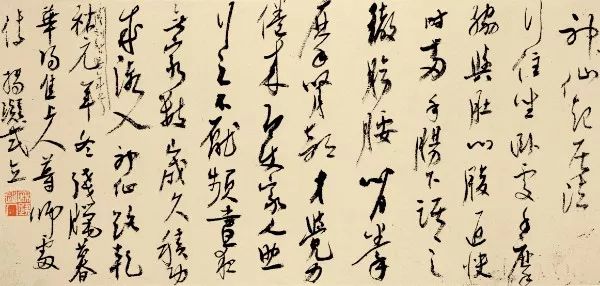 神仙起居法
行住坐卧處手摩
脇與肚心腹通快
時兩手腸下踞踞之
徹膀腰背拳
摩腎部才覺力
倦來即使家人助
行之不厭頻晝夜
無窮數歲久積功
成漸入神仙路乾
祐元年冬殘臘暮
華陽焦上人尊師處
傳楊凝式立